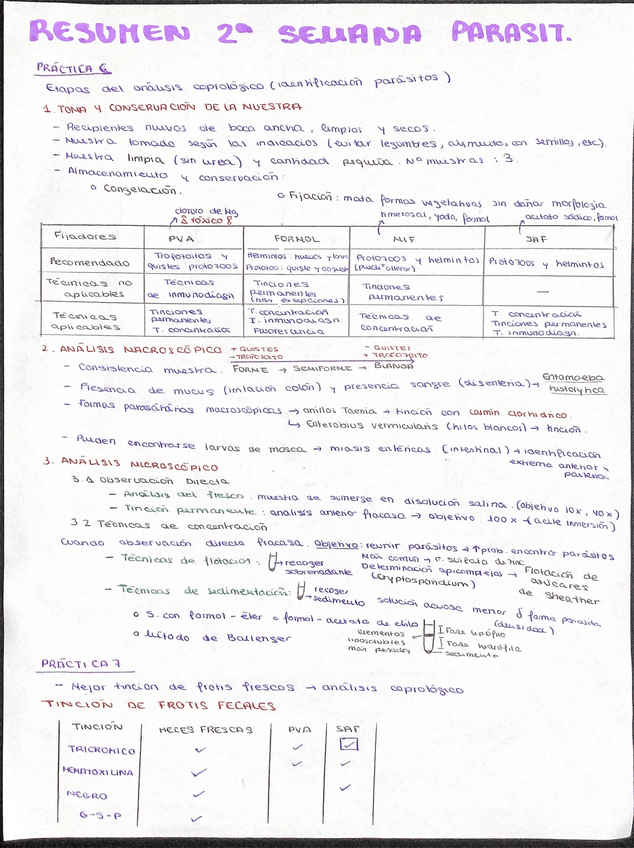 RESUMEN 2ª SEMANA PARASIT.
PRÁCTICA 6
Etapas del análisis coprológico (identificación parásitos)
1. TOMA Y CONSERVACIÓN DE LA MUESTRA
- Recipientes nuevos de boca ancha, limpios y secos.
- Muestra tomada según las indicacios (evitar legumbres, con semillas, etc).
- Muestra limpia (sin urea) y cantidad pequeña. Nº muestras : 3.
- Almacenamiento y conservación:
o Congelación.
o Fijación: mata formas vegetativas sin dañar morfología.
cloruro de Hg
tóxico
timerosal, yodo, formol
acetato sódico, formol
Fijadores PVA FORMOL MIF SAF
Recomendado Trofozoitos y quistes protozoos Helmintos: huevos y larva Protozoo: quiste y Protozoos y helmintos Protozoos y helmintos
Técnicas no aplicables Técnicas de inmunodiagn Tinciones permanentes (hay excepciones) Tinciones permanentes —
Técnicas aplicables Tinciones permanentes T. concentración T. concentración I. inmunodiagn Fluorescencia Técnicas de concentración T. concentración Tinciones permanentes T. inmunodiagn.
2. ANÁLISIS MACROSCÓPICO + QUISTES - TROFOZOITO - QUISTES + TROFOZOITO
- Consistencia muestra. FORME → SEMIFORME → BLANDA
- Presencia de mucus (irritación colón) y presencia sangre (disentería) → Entamoeba histolytica
- Formas parasitarias macroscópicas → anillos Taenia → tinción con carmín clorhídrico.
↳ Enterobius vermicularis (hilos blancos) → tinción.
- Pueden encontrarse larvas de mosca → miasis entéricas (intestinal) → identificación
extremo anterior y
posterior.
3. ANÁLISIS MICROSCÓPICO
3.1 Observación directa
- Análisis del fresco. muestra se sumerge en disolución salina. (objetivo 10x, 40x)
- Tinción permanente: análisis anterior fracasa → objetivo 100x (aceite inmersión)
3.2 Técnicas de concentración
Cuando observación directa fracasa. Objetivo: reunir parásitos → ↑prob. encontrar parásitos
- Técnicas de flotación: → recoger sobrenadante
Más común → F. sulfato de zinc
Determinación apicomplejos → Flotación de
(Cryptosporidium) azúcares
de Sheather
- Técnicas de sedimentación: → recoger sedimento solución acuosa menor δ forma parasita
(densidad)
o S. con formol - éter o formol - acetato de etilo
o Método de Bailenger
elementos
liposolubles
más pesados
Fase lipófila
Fase hidrófila
sedimento
PRÁCTICA 7
- Mejor tinción de frotis frescos → análisis coprológico
TINCIÓN DE FROTIS FECALES
TINCIÓN HECES FRESCAS PVA SAF
TRICRÓMICO ✓ ✓ ☑
HEMATOXILINA ✓ ✓ ✓
NEGRO ✓ ✓
G-S-P ✓